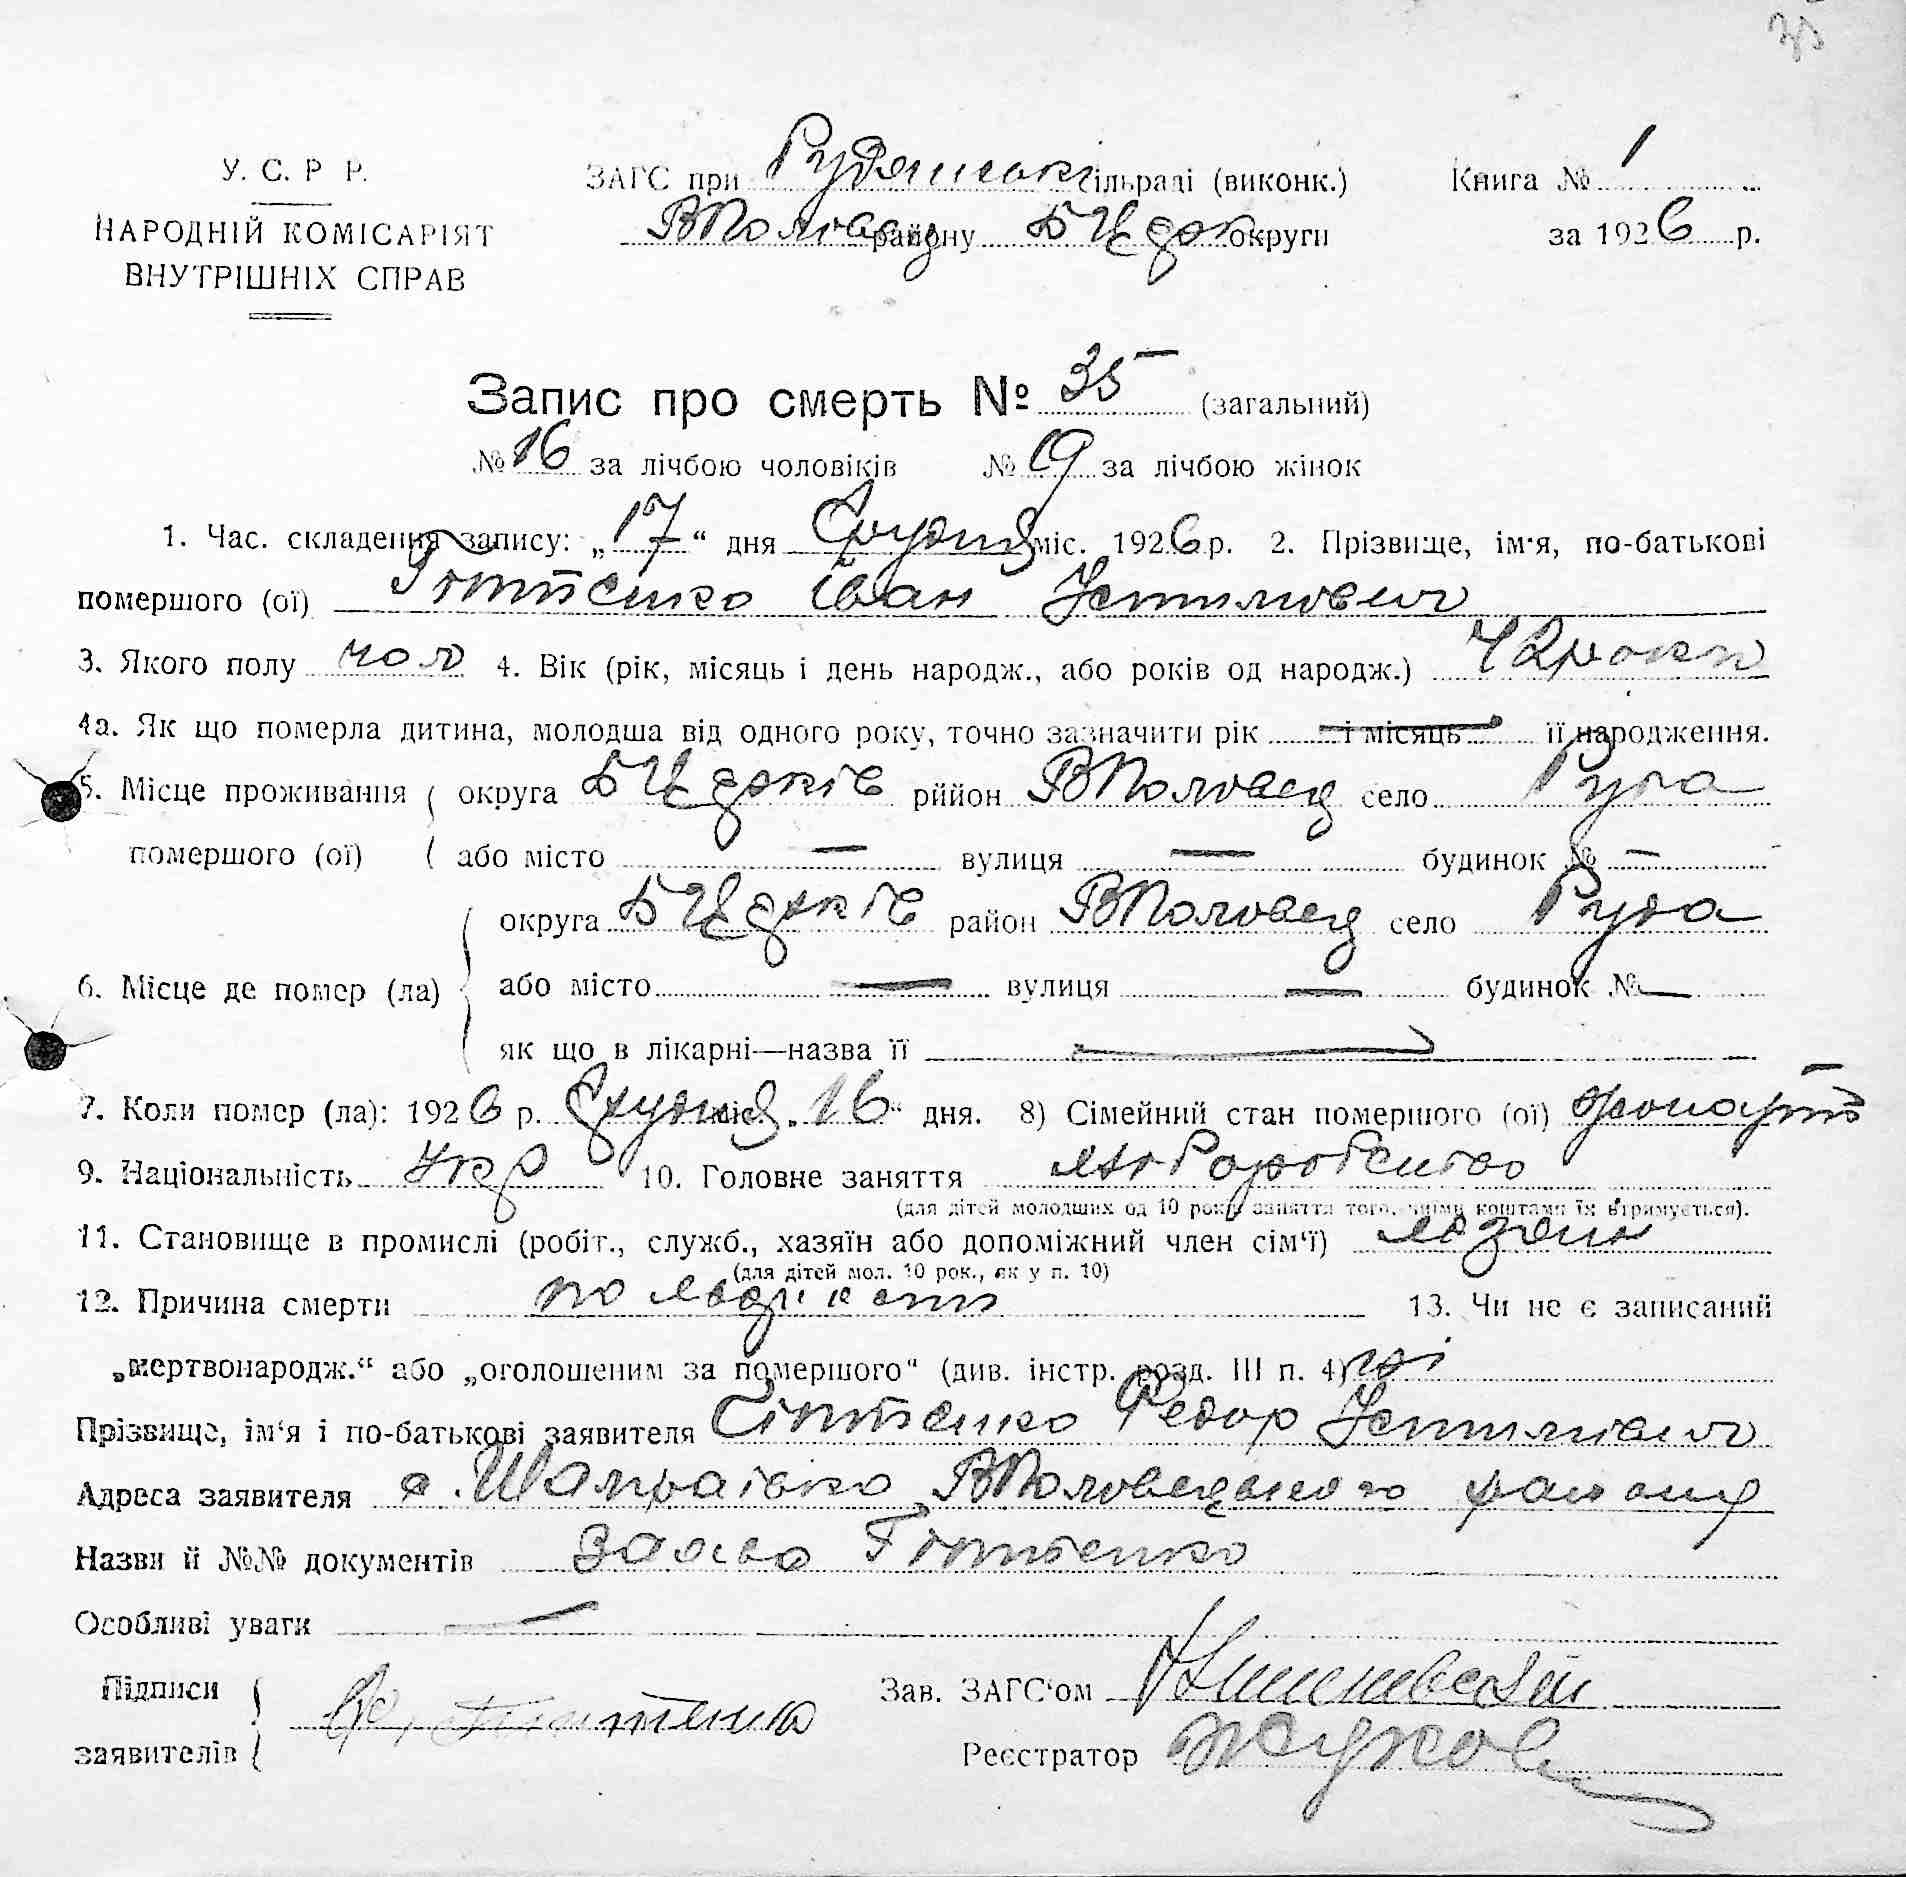 35
У. С. Р. Р.
НАРОДНІЙ КОМІСАРІЯТ
ВНУТРІШНІХ СПРАВ
ЗАГС при Рудянські сільраді (виконк.)
ВПоловец району БЦерк округи
Книга № 1
за 1926 р.
Запис про смерть № 35 (загальний)
№ 16 за лічбою чоловіків № 19 за лічбою жінок
1. Час. складення запису: „17“ дня Грудня міс. 1926 р. 2. Прізвище, ім'я, по-батькові
помершого (ої) Іван Устимович
3. Якого полу чол 4. Вік (рік, місяць і день народж., або років од народж.) 42 роки
4а. Як що померла дитина, молодша від одного року, точно зазначити рік — і місяць її народження.
5. Місце проживання округа БЦерків рййон ВПоловец село Руда
помершого (ої) або місто — вулиця — будинок № —
6. Місце де помер (ла) округа БЦерків район ВПоловец село Руда
або місто — вулиця — будинок № —
як що в лікарні—назва її —
7. Коли помер (ла): 1926 р. Грудня міс. „16“ дня. 8) Сімейний стан помершого (ої) жонатий
9. Національність Укр 10. Головне заняття хліборобство
(для дітей молодших од 10 років заняття того, чиїми коштами їх втримується).
11. Становище в промислі (робіт., служб., хазяїн або допоміжний член сім'ї) хазяин
(для дітей мол. 10 рок., як у п. 10)
12. Причина смерти 13. Чи не є записаний
„мертвонародж.“ або „оголошеним за помершого“ (див. інстр. розд. III п. 4) ні
Прізвище, ім'я і по-батькові заявителя Федор Устимович
Адреса заявителя с. ВПоловецького району
Назви й №№ документів заява
Особливі уваги —
Підписи
заявителів
Зав. ЗАГС'ом
Реєстратор